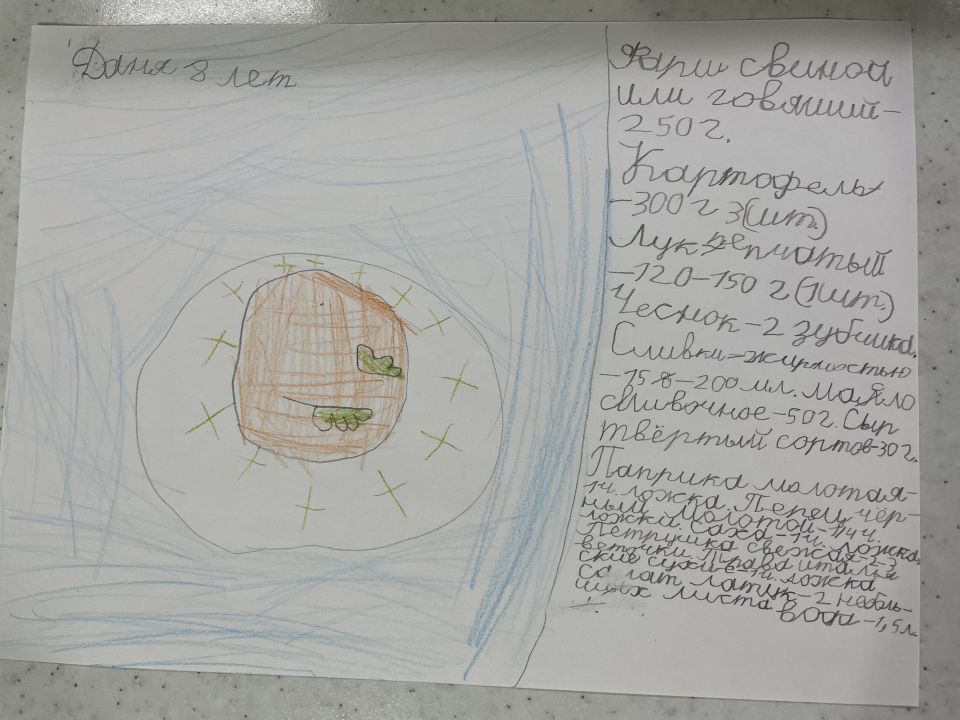 Даня 8 лет
Фарш свиной
или говяший-
250г.
Картофель
-300 г 3(шт.)
Лук репчатый
-120-150 г (1шт.)
Чеснок-2 зубчика.
Сливки-жирностью
-15%-200 мл. Масло
сливочное-50г. Сыр
твёртый сортов-30г.
Паприка молотая-
1ч. ложка. Перец чёр-
ный молотой-1/4 ч.
ложки. Саха-1ч. ложка
Петрушка свежая-2-3
веточки. Трава италья
ские сухие-1ч. ложка
Салат латук-2 неболь-
ших листа вода-1,5л.